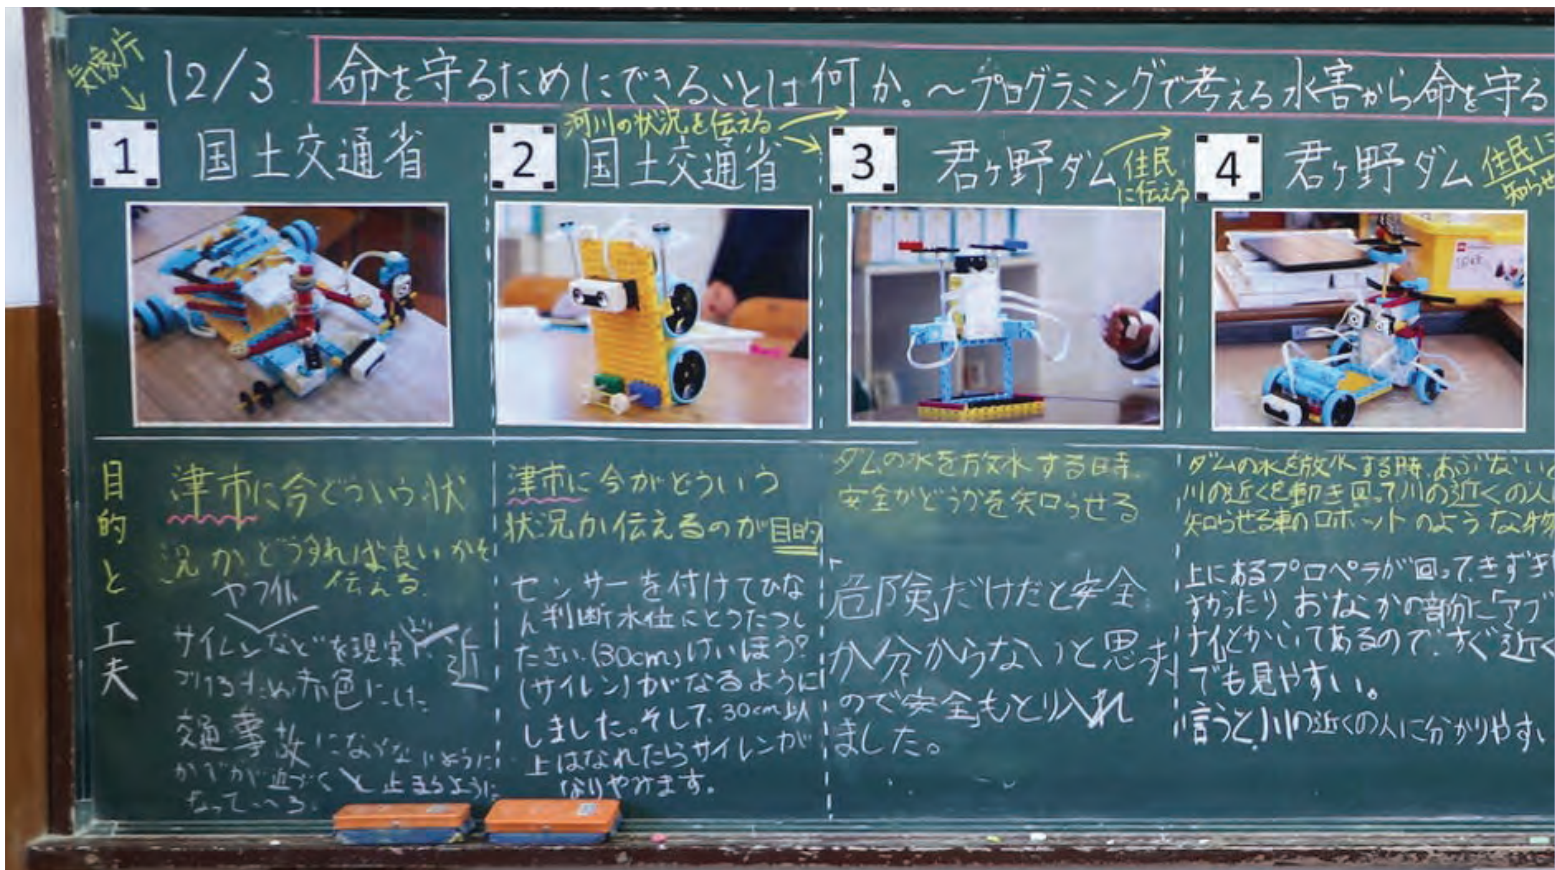 気象庁
12/3 命を守るためにできることは何か。〜プログラミングで考える水害から命を守る
1 国土交通省
河川の状況を伝える
2 国土交通省
3 君ヶ野ダム
住民
に伝える
4 君ヶ野ダム
住民に
知らせ
目的と工夫
津市に今どういう状
況かどうすれば良いかを
伝える
サイレンなどを現実に近
づけるため赤色にした
交通事故にならないように
かべが近づくと止まるように
なっている。
津市に今がどういう
状況か伝えるのが目的
センサーを付けてひな
ん判断水位にとうたつし
たさい(30cm)けいほう?
(サイレン)がなるように
しました。そして、30cm以
上はなれたらサイレンが
なりやみます。
ダムの水を放水する時
安全かどうかを知らせる
危険だけだと安全
か分からないと思った
ので安全もとり入れ
ました。
ダムの水を放水する時、あぶないと
川の近くを動き回って川の近くの人に
知らせる車のロボットのような物
上にあるプロペラが回って、きずき
すかったり、おなかの部分に「アブ
ナイ」とかいてあるので、すぐ近く
でも見やすい。
言うと、川の近くの人に分かりやすい